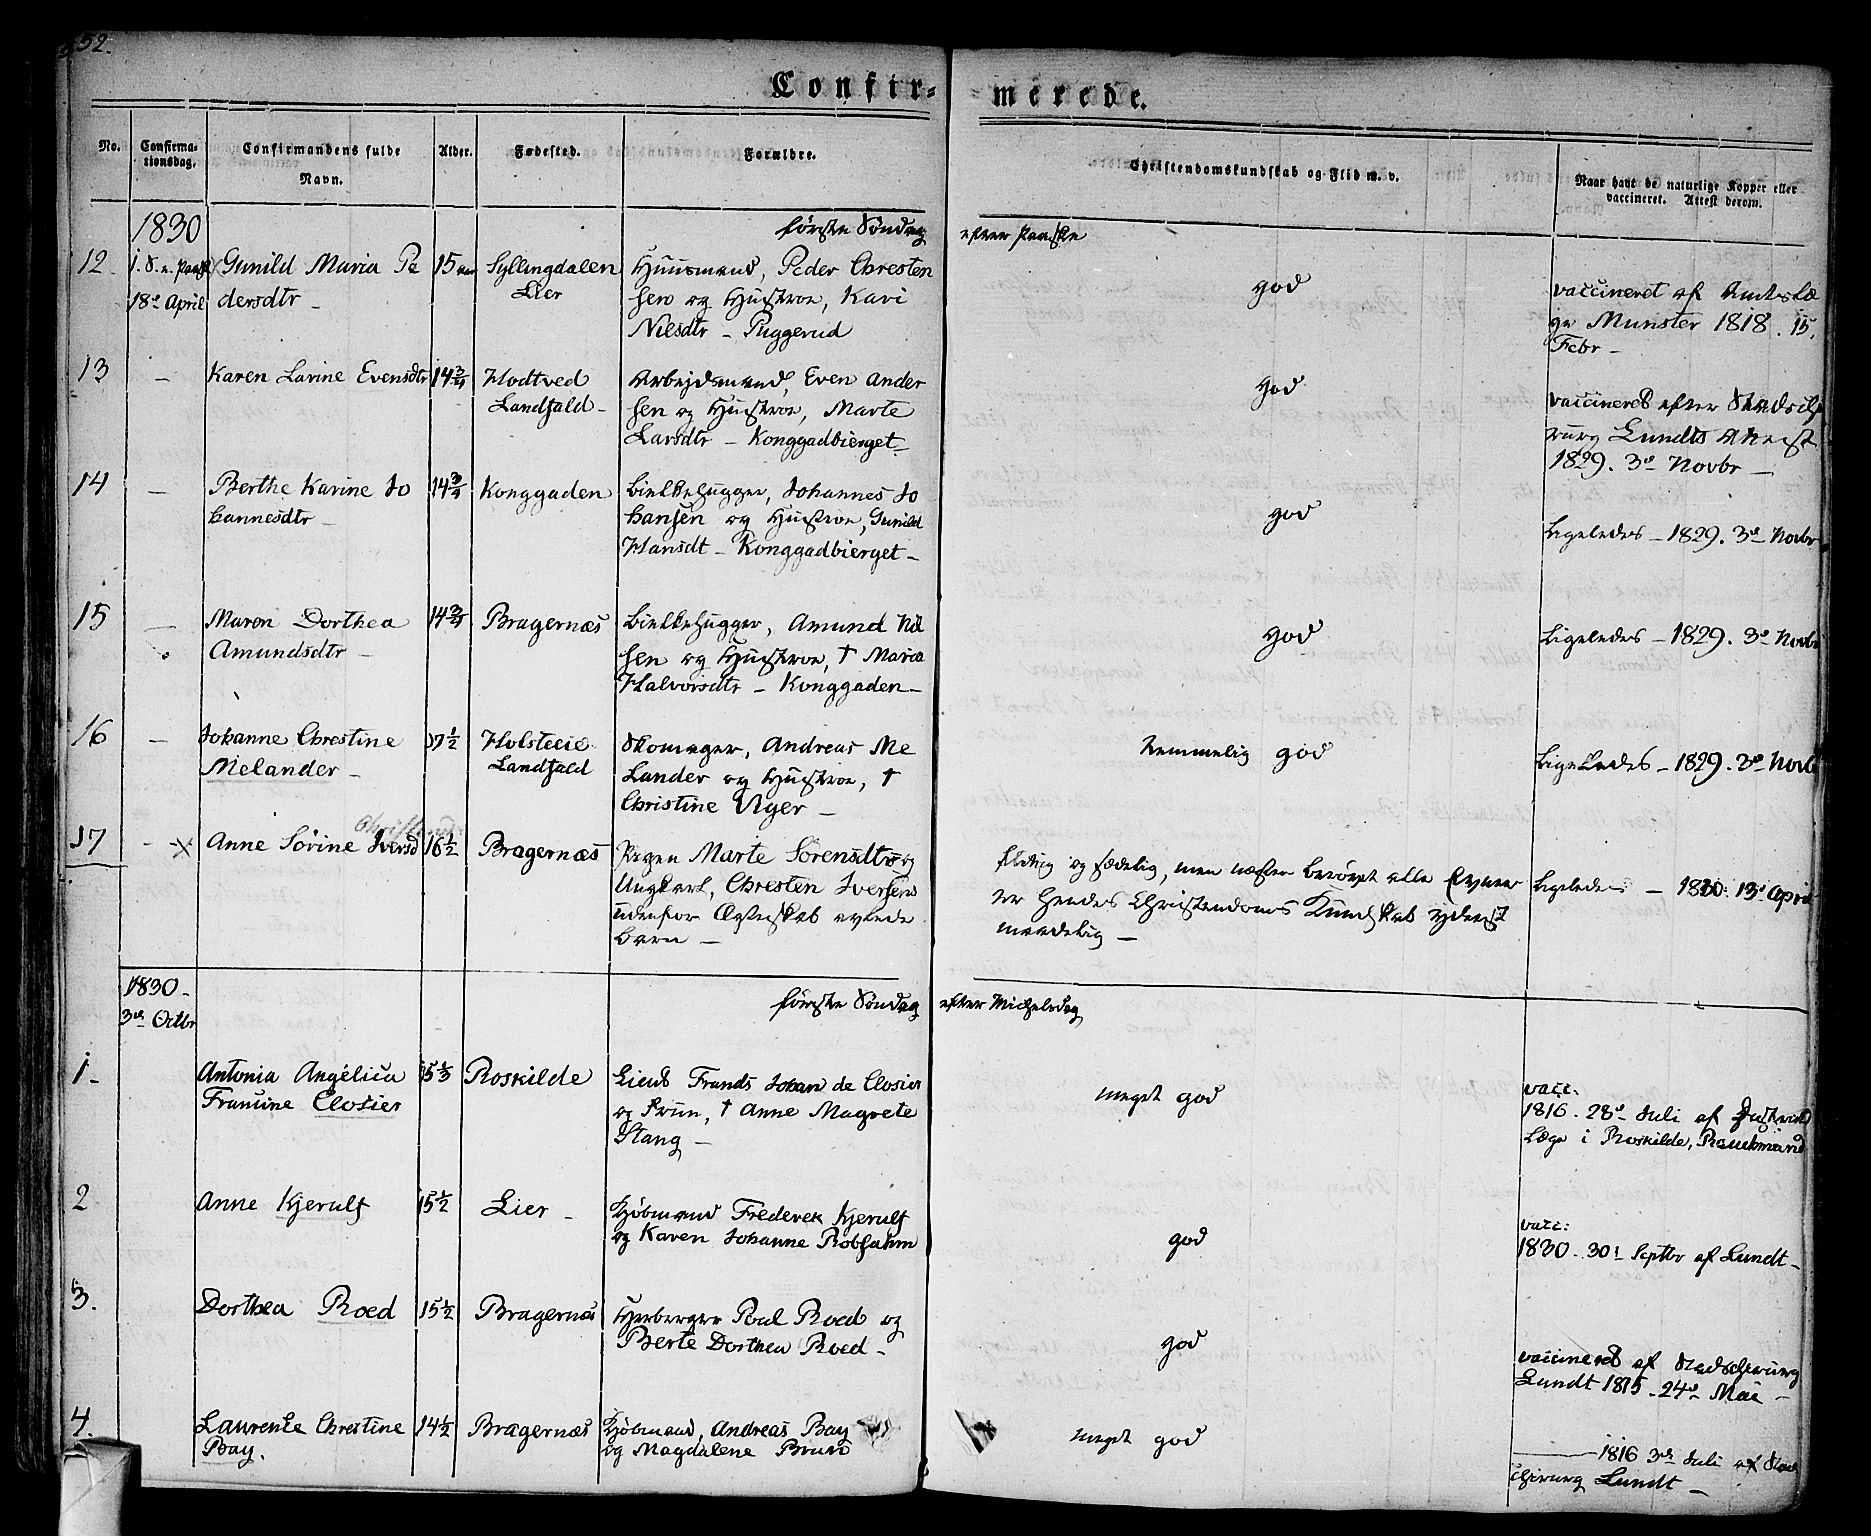 52.
Confir-
merede.
No.
Confirma-
tionsdag.
Confirmandens fulde
Navn.
Alder.
Fødested.
Forældre.
Christendomskundskab og Flid m. v.
Naar havt de naturlige Kopper eller
vaccineret. Attest derom.
1830
første Søndag efter Paaske
12. 1. S. e. Paaske Gunild Maria Pe 15 Syllingdalen Huusmand, Peder Chresten
18de April dersdtr Lier sen og Hustroe, Kari
Nilsdtr - Puggerud
god
vaccineret af Amtslæ
ge Munster 1818. 15.
Febr -
13 - Karen Lavine Evensdtr 14 3/4 Hodtved Arbejdsmand, Even Ander
Landfald - sen og Hustroe, Marte
Larsdtr - Konggadbierget -
god
vaccineret efter Stadschi
rurg Lundts Attest
1829. 3de Novbr -
14 - Berthe Karine Jo 14 3/4 Konggaden Bielkehugger, Johannes Jo
hannesdtr - hansen og Hustroe, Gunild
Hansdt - Konggadbierget -
god
Ligeledes - 1829. 3de Novbr
15 - Maren Dorthea 14 3/4 Bragernæs Bielkehugger, Amund Nil
Amundsdtr - sen og Hustroe, † Maria
Halvorsdtr - Konggaden -
god
Ligeledes - 1829. 3de Novbr
16 - Johanne Chrestine 17 1/2 Skomager, Andreas Me
Melander - Landfald lander og Hustroe, †
Christine Uger -
temmelig god
Ligeledes - 1829. 3de Novb
17 - Anne Sørine Iversd 16 1/2 Bragernæs Pigen Marte Sørensdtr og
Ungkarl, Chresten Iversens
udenfor Ægteskab avlede
Barn -
flittig og sædelig, men næsten berøvet alle Evner
er hendes Christendoms Kundskab yderst
maadelig -
Ligeledes - 1830. 13de April
1830 -
3de Octbr
første Søndag efter Michelsdag
1 - Antonia Angelica 15 1/3 Roskilde Lieut Frands Johan de Closier
Francine Closier og Frue, † Anne Magrete
Stang -
meget god
vacc:
1816 - 28de Juli af
Læge i Roskilde,
2 Anne Kjerulf 15 1/2 Lier - Kjøbmand Frederek Kjerulf
og Karen Johanne Robsahm
god
vacc:
1830 - 30te Septbr af Lundt -
3. Dorthea Roed 15 1/2 Bragernæs Poul Roed og
Berte Dorthea Roed -
god
vaccineret af Stadschirurg
Lundt 1815 - 24de Mai -
4. Laurentze Chrestine 14 1/2 Bragernæs Kjøbmand, Andreas Bay
Bay. og Magdalene Bruun
meget god
- 1816 3de Juli af Stad
chirurg Lundt -